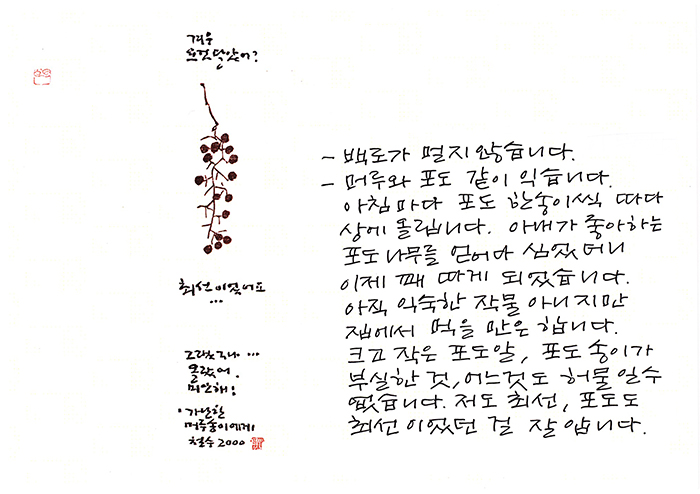 겨우
요것 달았어?
최선이었어요
...
그랬구나 ...
몰랐어.
미안해!
• 가난한
머루송이에게
철수 2000
- 백로가 멀지 않습니다.
- 머루와 포도 같이 익습니다.
아침마다 포도 한송이씩 따다
상에 올립니다. 아내가 좋아하는
포도나무를 얻어다 심었더니
이제 꽤 따게 되었습니다.
아직 익숙한 작물 아니지만
집에서 먹을 만은 합니다.
크고 작은 포도알, 포도송이가
부실한 것, 어느것도 허물일수
없습니다. 저도 최선, 포도도
최선이었던 걸 잘 압니다.